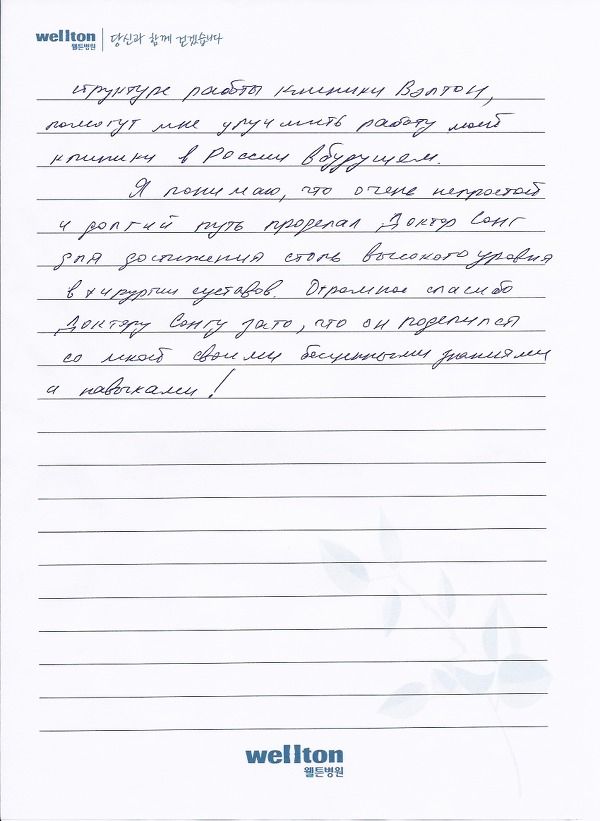 wellton
웰튼병원
당신과 함께 걷겠습니다
структуре работы клиники Вэлтон,
помогут мне улучшить работу моей
клиники в России в будущем.
Я понимаю, что очень непростой
и долгий путь проделал Доктор Сонг
для достижения столь высокого уровня
в хирургии суставов. Огромное спасибо
Доктору Сонгу за то, что он поделился
со мной своими бесценными знаниями
и навыками!
wellton
웰튼병원